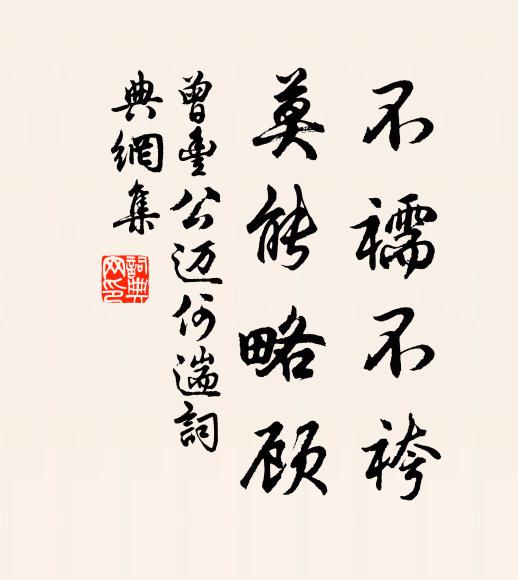 不襦不袴
莫能略顾
曾丰公迈何遄詞
典網集
詞典網印